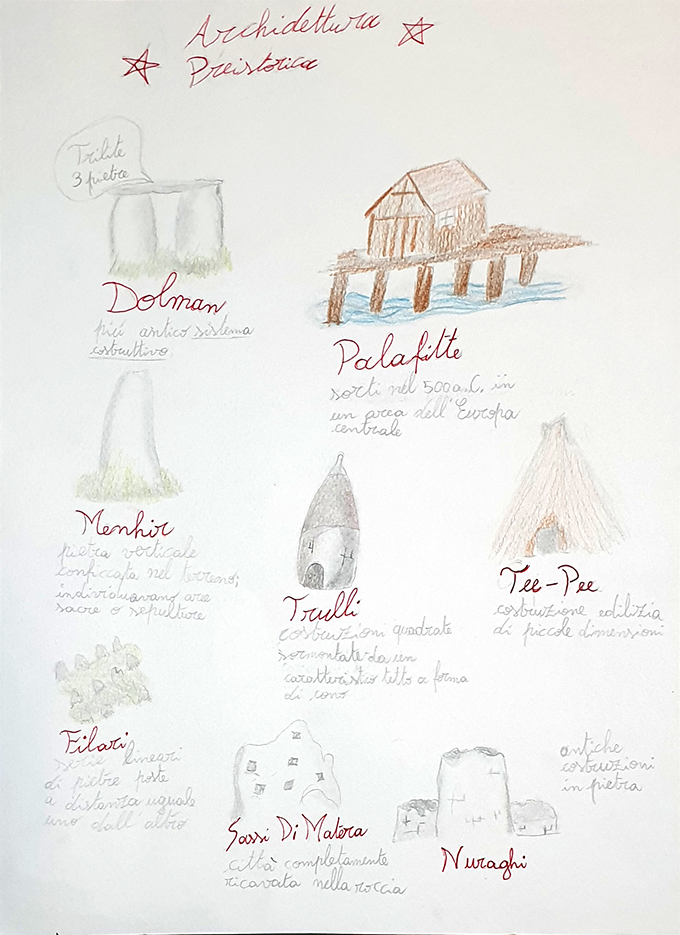 Archidettura
Preistorica
Trilite
3 pietre
Dolman
più antico sistema
costruttivo
Palafitte
sorti nel 500 a.C. in
un area dell'Europa
centrale
Menhir
pietra verticale
conficcata nel terreno;
individuavano aree
sacre o sepulture
Trulli
costruzioni quadrate
sormontate da un
caratteristico tetto a forma
di cono
Tee-Pee
costruzione edilizia
di piccole dimensioni
Filari
serie lineari
di pietre poste
a distanza uguale
uno dall'altro
Sassi Di Matera
città completamente
ricavata nella roccia
Nuraghi
antiche
costruzioni
in pietra